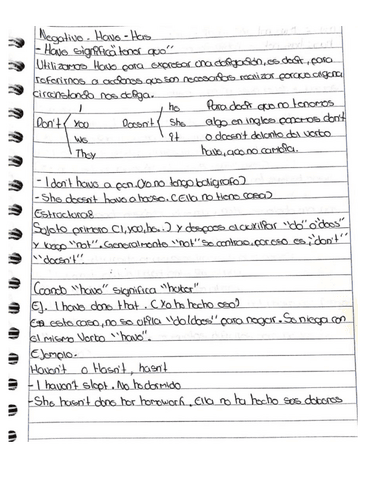 Negativo. Have - Has
- Have significa "tener que"
Utilizamos Have para expresar una obligación, es decir, para
referirnos a acciones que son necesarias realizar porque alguna
circunstancia nos obliga.
I he Para decir que no tenemos
Don't You Doesn't She algo en ingles ponemos don't
We It o doesn't delante del verbo
They have, aca no cambia.
- I don't have a pen. (Yo no tengo boligrafo)
- She doesn't have a house. (Ella no tiene casa)
Estructura:
Sujeto primero (I, you, he..) y despues el auxiliar "do" o "does"
y luego "not". Generalmente "not" se contrae, por eso es; "don't"
"doesn't".
Cuando "have" significa "haber"
Ej. I have done that. (Yo he hecho eso)
En este caso, no se utiliza "do/does" para negar. Se niega con
el mismo Verbo "have".
Ejemplo.
Haven't o Hasn't, hasn't
- I haven't slept. No he dormido
- She hasn't done her homework. Ella no ha hecho sus deberes